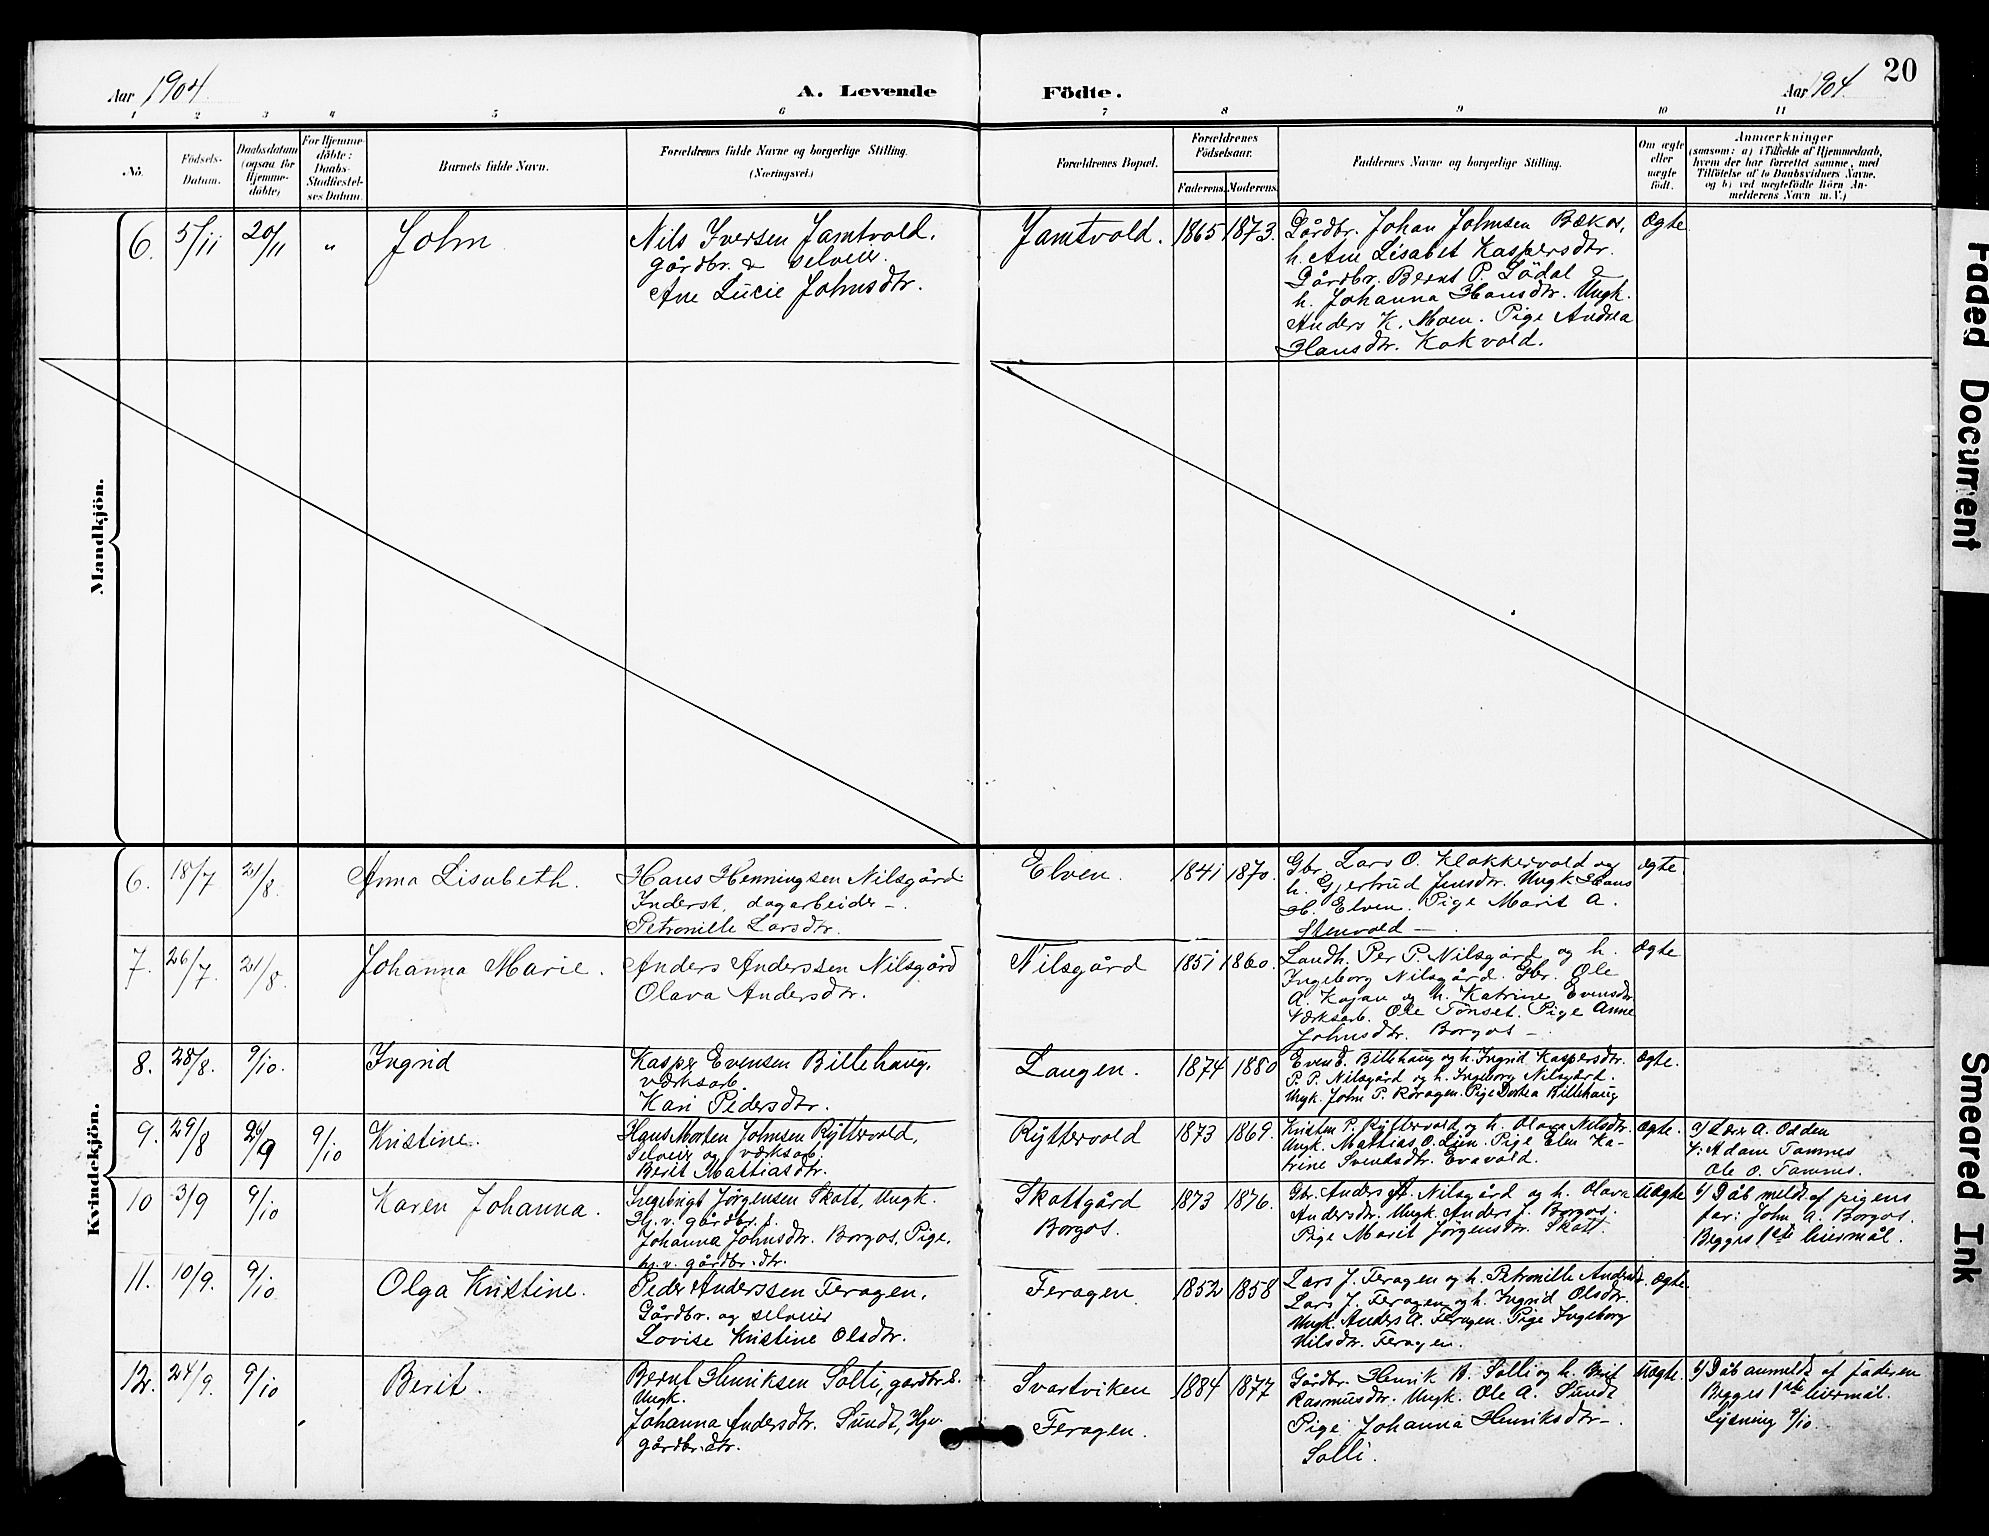 20
Aar 1904
A. Levende
Födte.
Aar 1904
1 2 3 4 5 6 7 8 9 10 11
No.
Födsels-
Datum.
Daabsdatum
(ogsaa for
Hjemme-
döbte)
For Hjemme-
döbte:
Daabs-
Stadfæstel-
ses Datum.
Barnets fulde Navn.
Forældrenes fulde Navne og borgerlige Stilling.
(Næringsvei.)
Forældrenes Bopæl.
Forældrenes
Födselsaar.
Faderens. Moderens.
Faddernes Navne og borgerlige Stilling.
Om ægte
eller
uægte
födt.
Anmærkninger
(saasom: a) i Tilfælde af Hjemmedaab,
hvem der har forrettet samme, med
Tilföielse af to Daabsvidners Navne,
og b) ved uægtefödte Börn An-
melderens Navn m. V.)
Mandkjön.
6. 5/11 20/11 " John
Nils Iversen Jamtvold.
gårdbr. & selveier.
Ane Lucie Johnsdtr.
Jamtvold. 1865 1873.
Gårdbr. Johan Johnsen Bækos,
h. Ane Lisabet Kaspersdtr.
Gårdbr. Bernt P. Södal &
h. Johanna Hansdtr. Ungk.
Anders K. Moen. Pige Andrea
Hansdtr. Kokvold.
Ægte
Kvindekjön.
6. 18/7 21/8. Anna Lisabeth.
Hans Henningsen Nilsgård
Inderst, dagarbeider -.
Petronille Larsdtr.
Elven. 1841 1870.
Gbr. Lars O. Klokkervold og
h. Gjertrud Jensdtr. Ungk Hans
H. Elven. Pige Marit A.
Stenvold -
Ægte
7. 26/7. 21/8. Johanna Marie.
Anders Anderssen Nilsgård
Olava Andersdtr.
Nilsgård 1851 1860.
Landh. Per P. Nilsgård og h.
Ingeborg Nilsgård. Gbr. Ole
A. Kojan og h. Katrine Evensdtr
Værksarb. Ole Tönset. Pige Anne
Johnsdtr. Borgos -
Ægte
8. 28/8. 9/10. Ingrid
Kasper Evensen Billehaug,
værksarb.
Kari Pedersdtr.
Langen. 1874 1880
Even E. Billehaug og h. Ingrid Kaspersdtr.
P. P. Nilsgård og h. Ingeborg Nilsgård.
Ungk. John P. Röragen. Pige Dortea Billehaug
Ægte.
9. 29/8 26/9 9/10 Kristine.
Hans Morten Johnsen Ryttervold,
Selveier og værksarb.
Berit Mattiasdtr.
Ryttervold 1873 1869.
Kristen P. Ryttervold og h. Olava Nilsdtr.
Ungk. Mattias O. Lien. Pige Elen Ka-
trine Svendsdtr. Evavold.
Ægte.
a) Lærer A. Odden
V: Adam Tamnes
Ole O. Tamnes.
10 3/9 9/10 Karen Johanna.
Ingebrigt Jørgensen Skott, Ungk.
Hj. v. gårdbr. s.
Johanna Johnsdtr. Borgos, Pige,
hj. v. gårdbr. dtr.
Skottgård
Borgos. 1873 1876.
Gbr. Anders A. Nilsgård og h. Olava
Andersdtr. Ungk. Anders J. Borgos.
Pige Marit Jörgensdtr. Skott.
Uægte
b) Dåb meldt af pigens
far: John A. Borgos.
Begges 1ste leiermål.
11. 10/9. 9/10 Olga Kristine.
Peder Anderssen Feragen,
Gårdbr. og selveier
Lovise Kristine Olsdtr.
Feragen 1852 1858
Lars J. Feragen og h. Petronille Andersdt.
Lars J. Feragen og h. Ingrid Olsdtr.
Ungk. Anders A. Feragen. Pige Ingeborg
Nilsdtr. Feragen.
Ægte
12. 24/9. 9/10 Berit.
Bernt Henriksen Solli, gårdbr. s.
Ungk.
Johanna Andersdtr. Sundt, Hjv.
gårdbr. dtr.
Svartviken
Feragen. 1884 1877
Gårdbr. Henrik B. Solli og h. Berit
Rasmusdtr. Ungk. Ole A. Sundt
Pige Johanna Henriksdtr-.
Solli.
Uægte.
b) Dåb anmeldt af faderen
Begges 1ste leiermål.
Lysning 9/10.
Faded Document
Smeared Ink